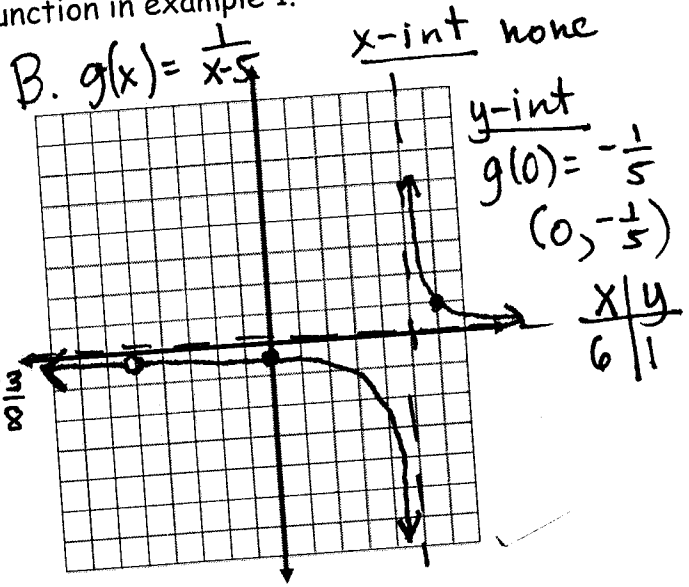 unction in example 1.
B. g(x) = 1/(x-5)
x-int none
y-int
g(0) = -1/5
(0, -1/5)
x | y
6 | 1